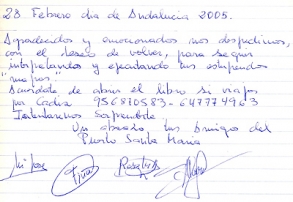 28 Febrero dia de Andalucia 2005.
Agradecidos y emocionados nos despedimos,
con el deseo de volver, para seguir
interpretando y ejecutando tus estupendos
"mapas".
de abrir el libro si viajas
por Cadiz 956810583 - 647774963
Intentaremos Sorprenderte
Un abrazo, tus Amigos del
Puerto Santa Maria